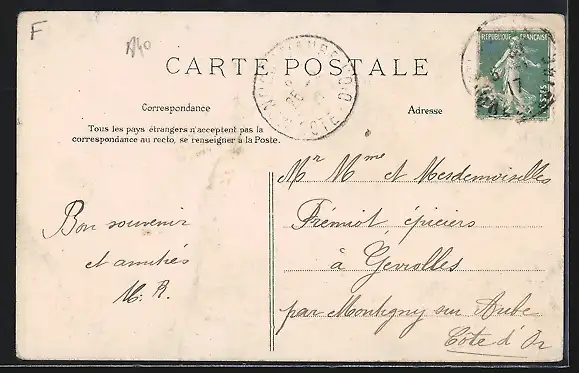 F
CARTE POSTALE
REPUBLIQUE FRANÇAISE
POSTES
Correspondance
Adresse
Tous les pays étrangers n'acceptent pas la
correspondance au recto, se renseigner à la Poste.
Mr Mme et Mesdemoiselles
Frémiot, épiciers
à Gevrolles
par Montigny sur Aube
Côte d'Or
Bon souvenir
et amitiés
M. R.